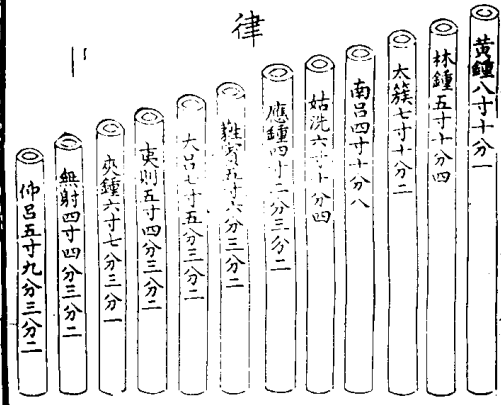 律
黃鍾八寸十分一
林鍾五寸十分四
太簇七寸十分二
南呂四寸十分八
姑洗六寸十分四
應鍾四寸二分三分二
蕤賓五寸六分三分二
大呂七寸五分三分二
夷則五寸四分三分二
夾鍾六寸七分三分一
無射四寸四分三分二
仲呂五寸九分三分二